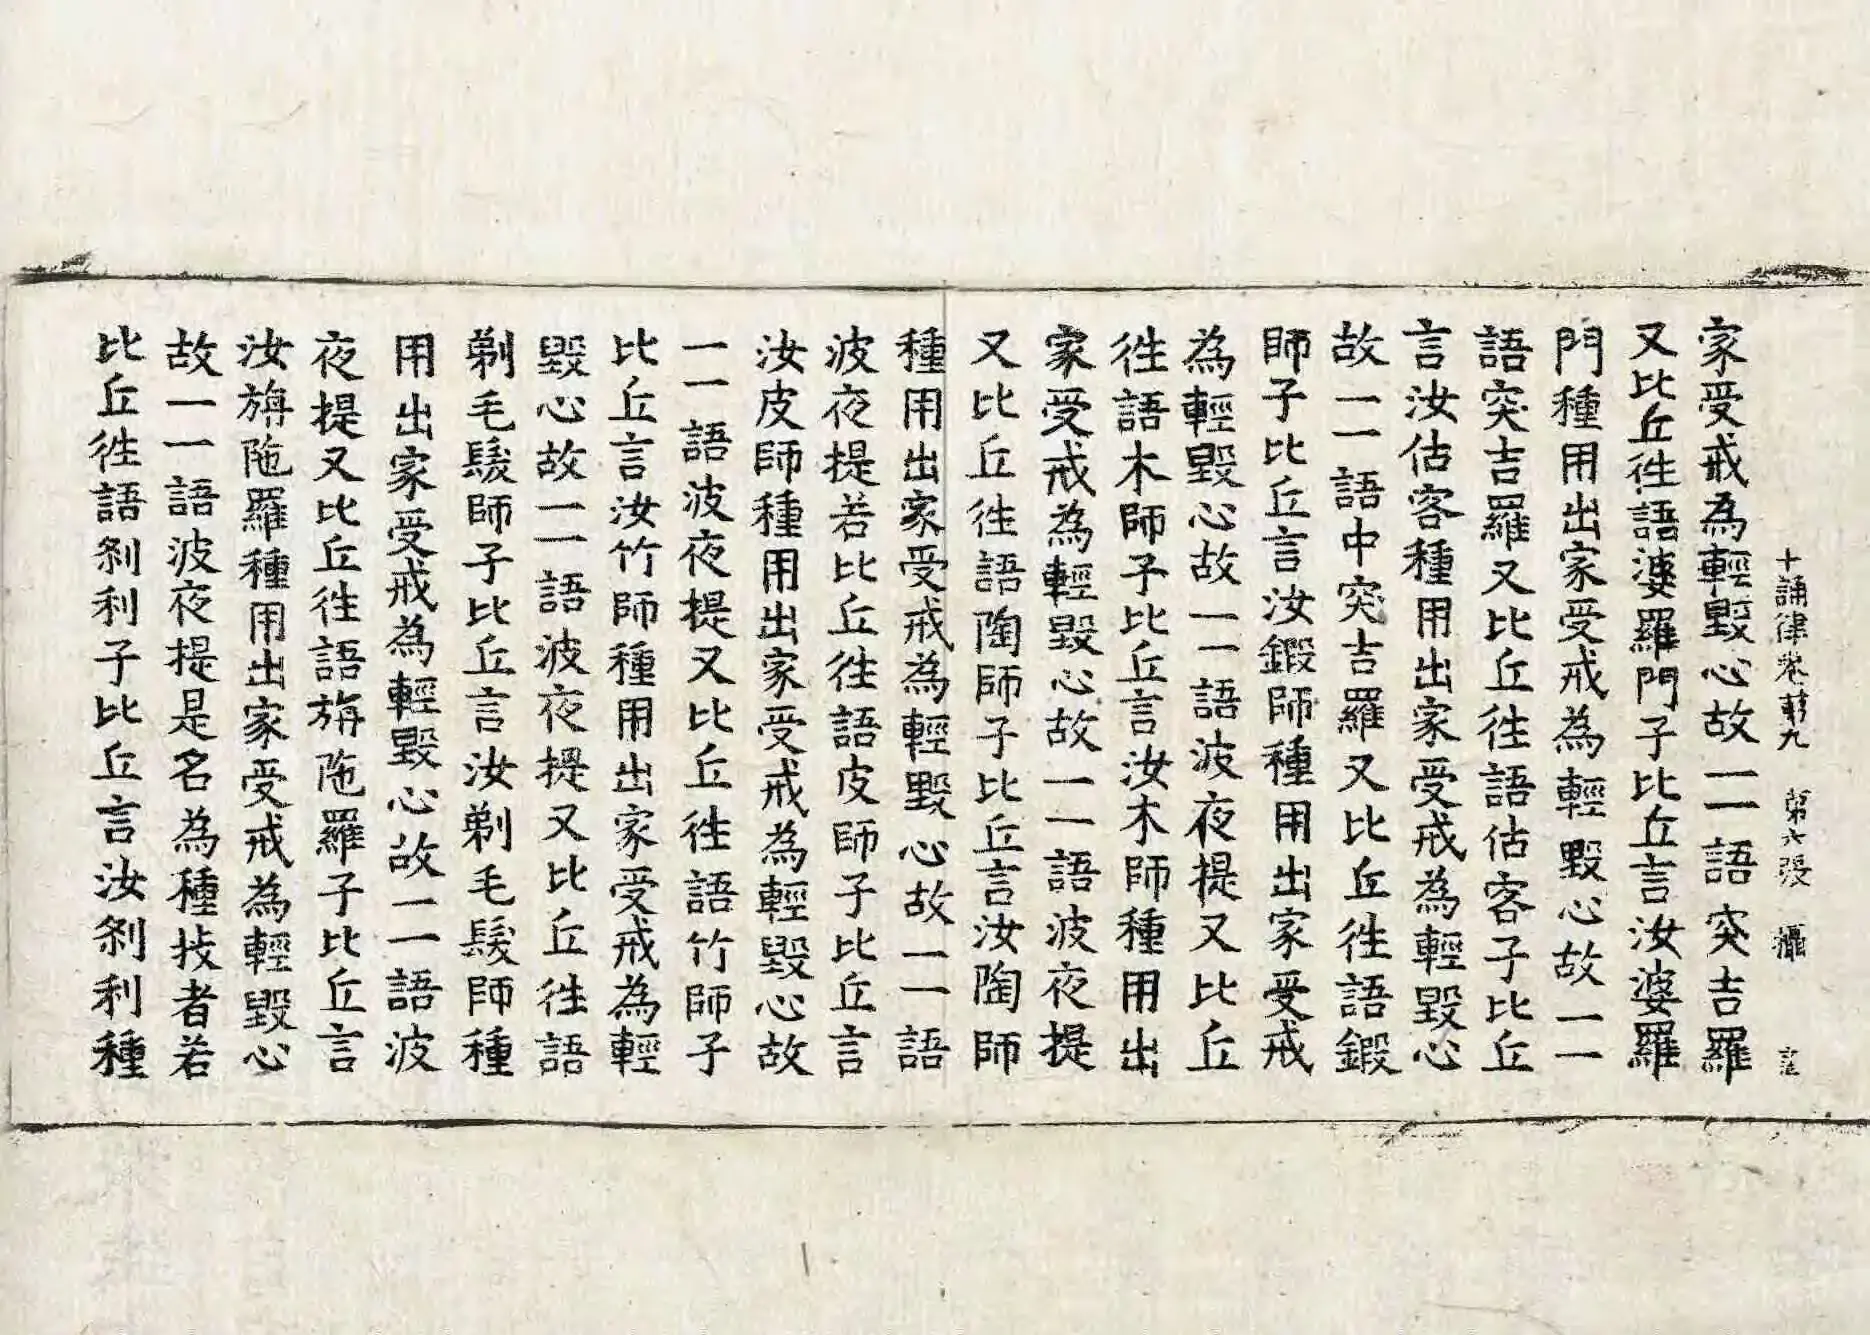 十誦律卷第九 第六張 攝
家受戒為輕毀心故一一語突吉羅
又比丘徃語婆羅門子比丘言汝婆羅
門種用出家受戒為輕毀心故一一
語突吉羅又比丘徃語估客子比丘
言汝估客種用出家受戒為輕毀心
故一一語中突吉羅又比丘徃語鍛
師子比丘言汝鍛師種用出家受戒
為輕毀心故一一語波夜提又比丘
徃語木師子比丘言汝木師種用出
家受戒為輕毀心故一一語波夜提
又比丘徃語陶師子比丘言汝陶師
種用出家受戒為輕毀心故一一語
波夜提若比丘徃語皮師子比丘言
汝皮師種用出家受戒為輕毀心故
一一語波夜提又比丘徃語竹師子
比丘言汝竹師種用出家受戒為輕
毀心故一一語波夜提又比丘徃語
剃毛髮師子比丘言汝剃毛髮師種
用出家受戒為輕毀心故一一語波
夜提又比丘徃語旃陁羅子比丘言
汝旃陁羅種用出家受戒為輕毀心
故一一語波夜提是名為種技者若
比丘徃語刹利子比丘言汝刹利種